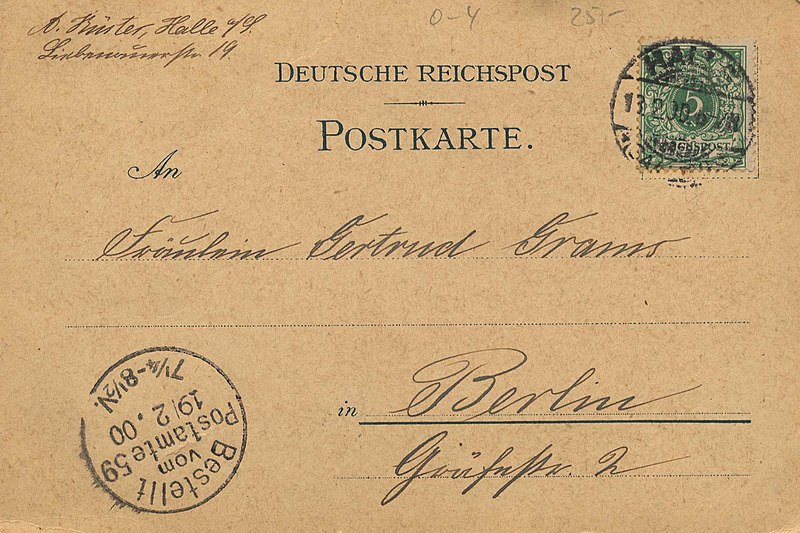 A. Küster, Halle a/S.
Liebenauerstr. 19.
0-4
25,-
DEUTSCHE REICHSPOST
POSTKARTE.
HALLE
5
REICHSPOST
An
Fräulein Gertrud Grams
in Berlin
Gräfestr. 2
Bestellt
vom
Postamte 59
19/2.00
7¼-8½N.